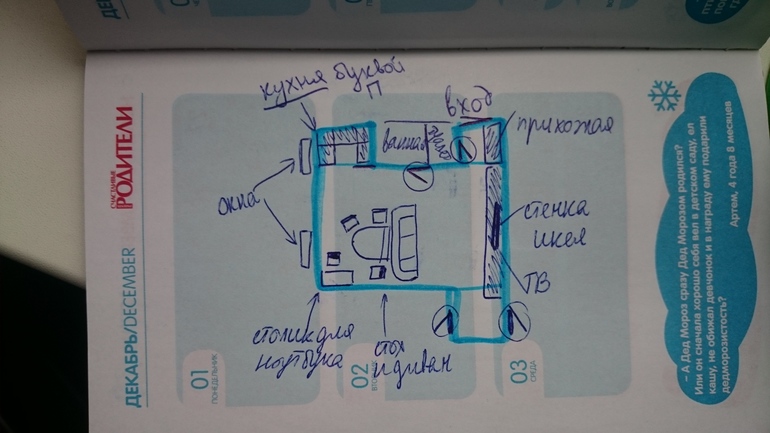 кухня буквой
П
вход
прихожая
ванная
окна
стенка
икея
ТВ
столик для
ноутбука
стол
и диван
СЧАСТЛИВЫЕ
РОДИТЕЛИ
ДЕКАБРЬ/DECEMBER
01
ПОНЕДЕЛЬНИК
02
03
СРЕДА
– А Дед Мороз сразу Дед Морозом родился?
Или он сначала хорошо себя вел в детском саду, ел
кашу, не обижал девчонок и в награду ему подарили
дедморозистость?
Артем, 4 года 8 месяцев